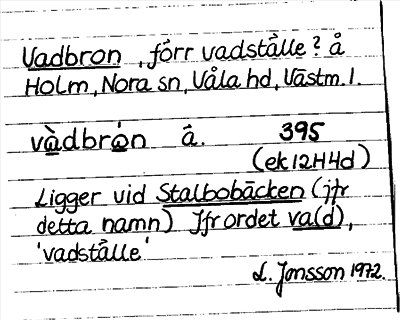 Vadbron, förr vadställe? å
Holm, Nora sn, Våla hd, Västm. l.
vàdbrón å. 395
(ek 12H4d)
Ligger vid Stalbobäcken (jfr
detta namn) Jfr ordet va(d),
'vadställe'
L. Jonsson 1972.